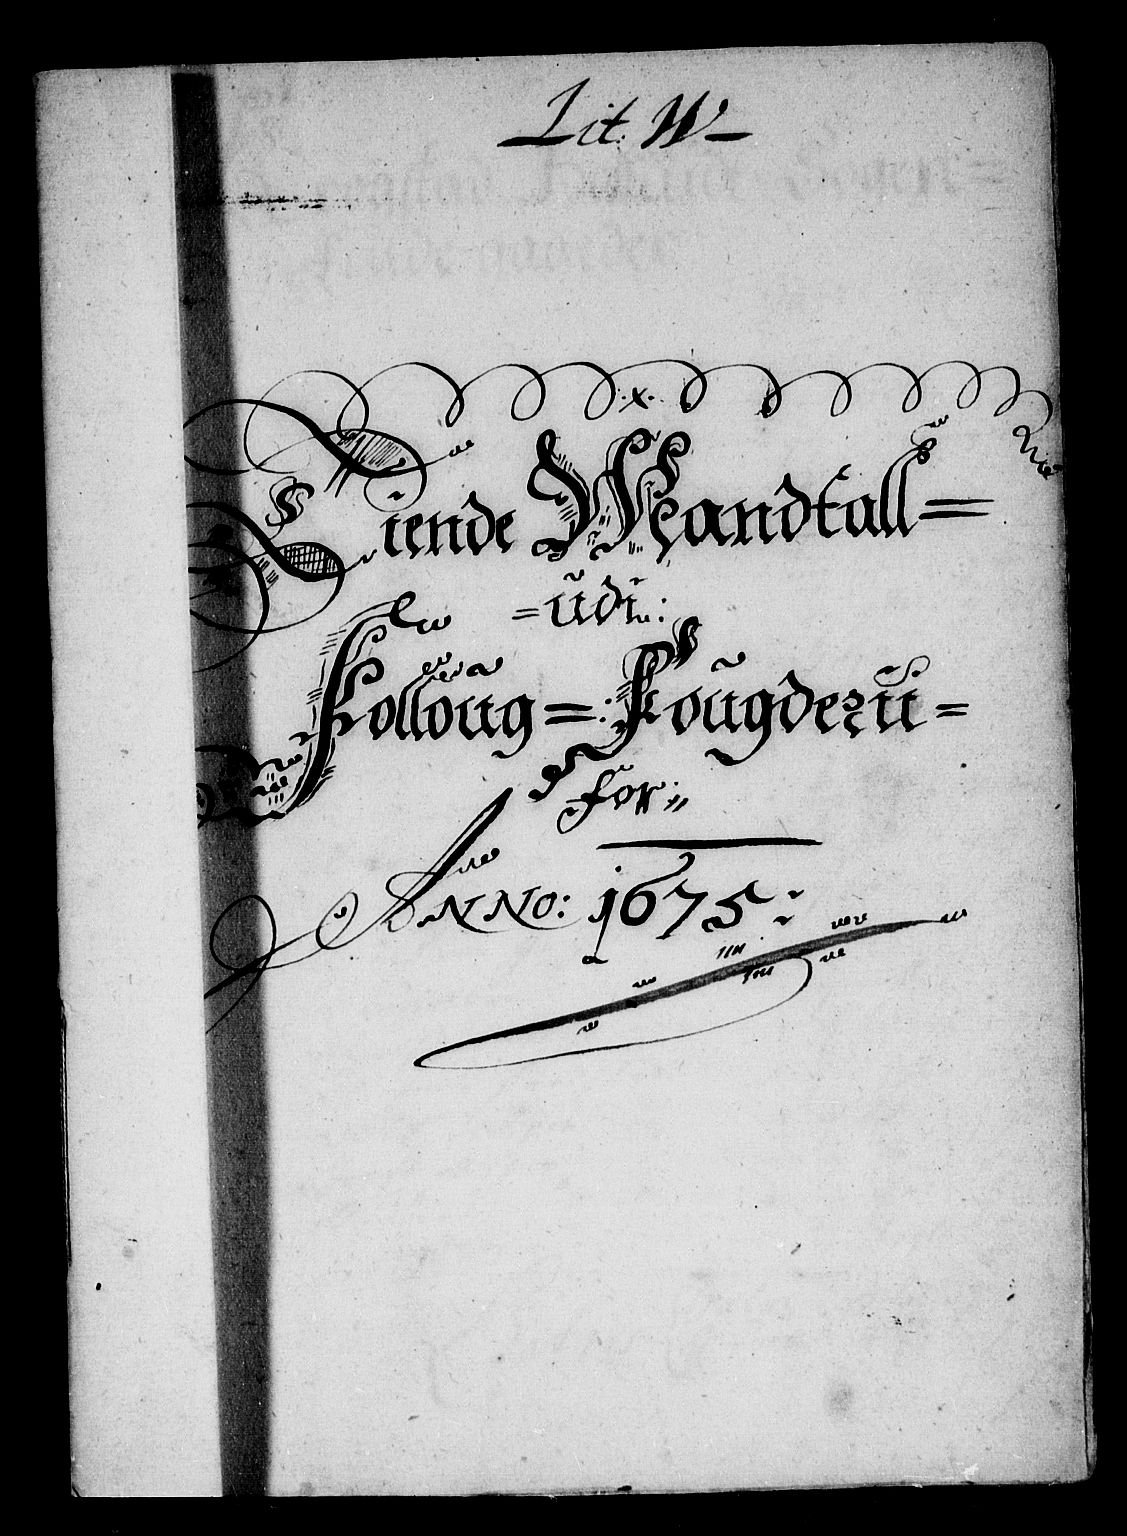 Lit. W
Tiende Mandtall=
=udi:
Folloug=Fougderii=
for
ANNO: 1675: